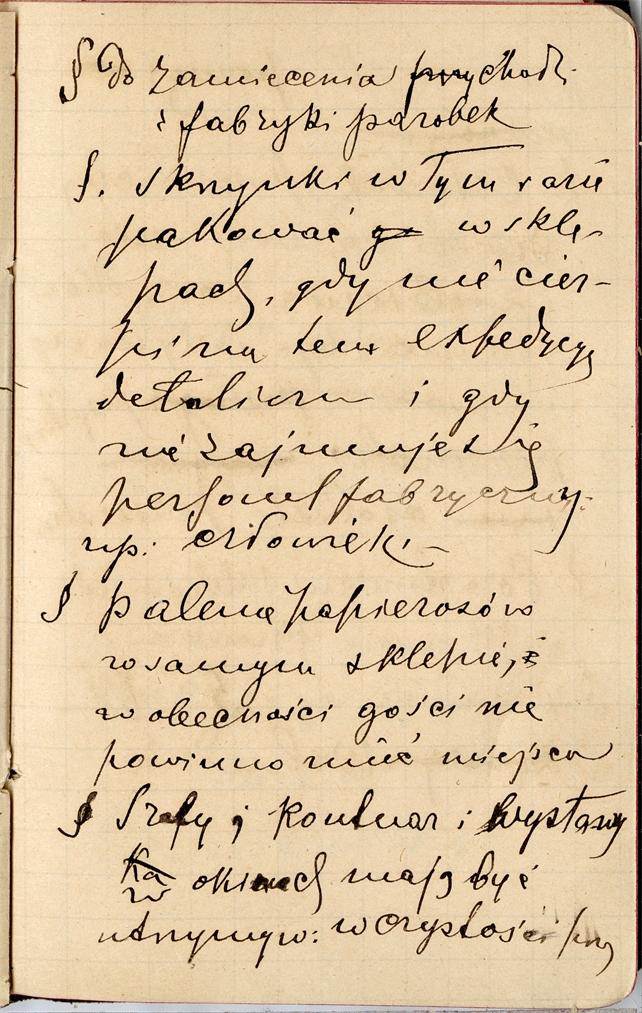 § do zamiecenia przychodzi
z fabryki parobek
§. Skrzynki w Tym razie
pakować w skle-
pach, gdy nie cier-
pi na tem expedycya
detaliczn i gdy
nie zajmuje się
personel fabryczny.
np: człowiek
§ Palenie papierosów
w samym sklepie,
w obecności gości nie
powinno mieć miejsca
§ Szafy, kontuar i wystawy
w oknach mają być
utrzymyw: w czystości